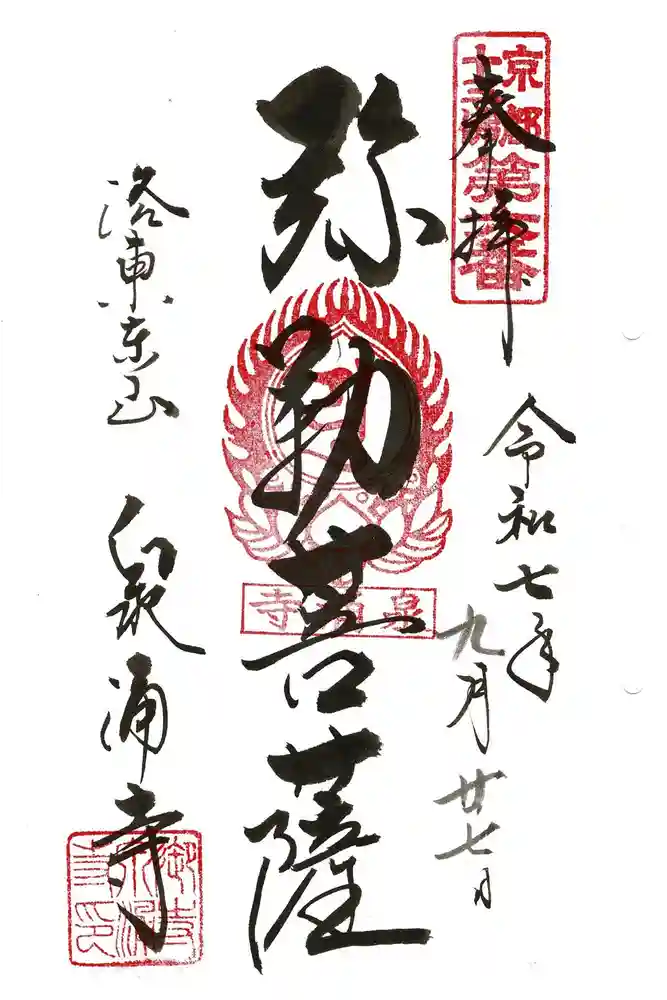 京都
十三佛第六番
奉拝
令和七年
九月廿七日
弥勒菩薩
泉涌寺
洛東東山
泉涌寺
御寺
泉涌
寺印